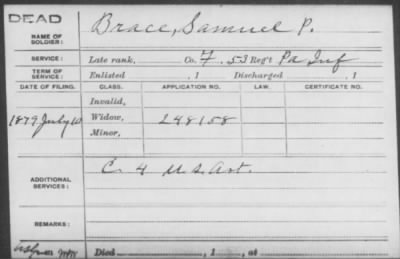 DEAD
NAME OF SOLDIER: Brace, Samuel P.
SERVICE: Late rank, Co. F. 53 Reg't Pa Inf
TERM OF SERVICE: Enlisted , 1 Discharged , 1
DATE OF FILING. CLASS. APPLICATION NO. LAW. CERTIFICATE NO.
Invalid,
1879 July 10 Widow, 248158
Minor,
C. 4 U.S. Art.
ADDITIONAL SERVICES:
REMARKS:
Died , 1 , at